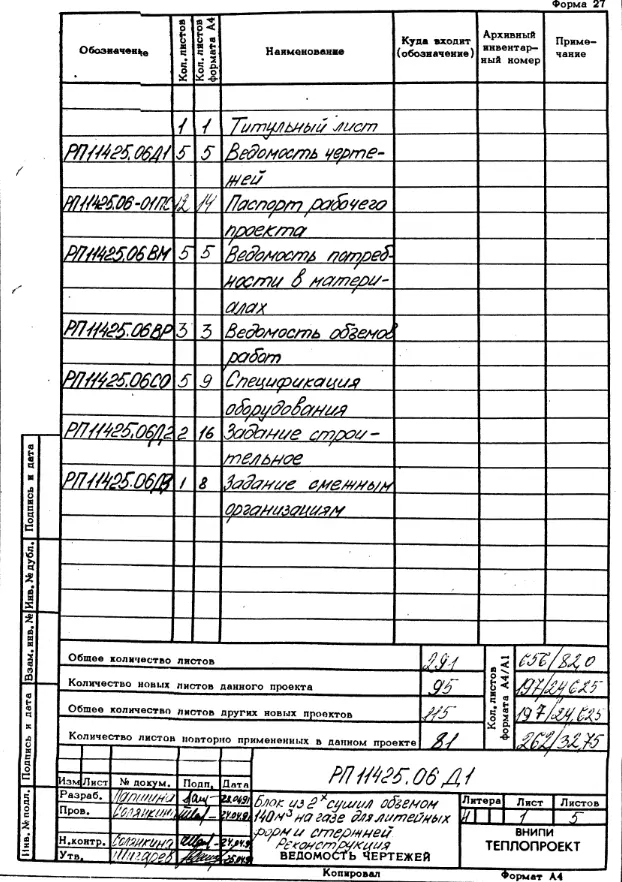 Форма 27
Обозначение Кол. листов Кол. листов формата А4 Наименование Куда входит (обозначение) Архивный инвентарный номер Примечание
1 1 Титульный лист
РП11425.06Д1 5 5 Ведомость черте-
жей
РП11425.06-01ПС 12 14 Паспорт рабочего
проекта
РП11425.06ВМ 5 5 Ведомость потреб-
ности в матери-
алах
РП11425.06ВР 3 3 Ведомость объемов
работ
РП11425.06СО 5 9 Спецификация
оборудования
РП11425.06Д2 2 16 Задание строи-
тельное
РП11425.06Д3 1 8 Задание смежным
организациям
Общее количество листов 291
Количество новых листов данного проекта 95
Общее количество листов других новых проектов 115
Количество листов повторно примененных в данном проекте 81
Кол. листов формата А4/А1
656/82,0
197/24,625
197/24,625
262/32,75
Подпись и дата
Инв. № дубл.
Взам. инв. №
Подпись и дата
Инв. № подл.
РП11425.06 Д1
Изм Лист № докум. Подп. Дата
Разраб.
Пров.
Н.контр.
Утв.
Блок из 2х сушил объемом
140 м³ на газе для литейных
форм и стержней
Реконструкция
ВЕДОМОСТЬ ЧЕРТЕЖЕЙ
Литера Лист Листов
1 5
ВНИПИ
ТЕПЛОПРОЕКТ
Копировал Формат А4